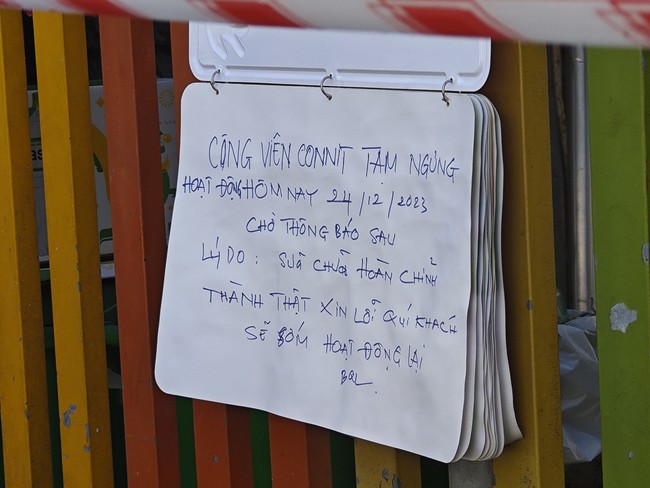 CÔNG VIÊN CONNIT TẠM NGỪNG
HOẠT ĐỘNG HÔM NAY 24/12/2023
CHỜ THÔNG BÁO SAU
LÝ DO : SỬA CHỮA HOÀN CHỈNH
THÀNH THẬT XIN LỖI QUÍ KHÁCH
SẼ SỚM HOẠT ĐỘNG LẠI
BQL